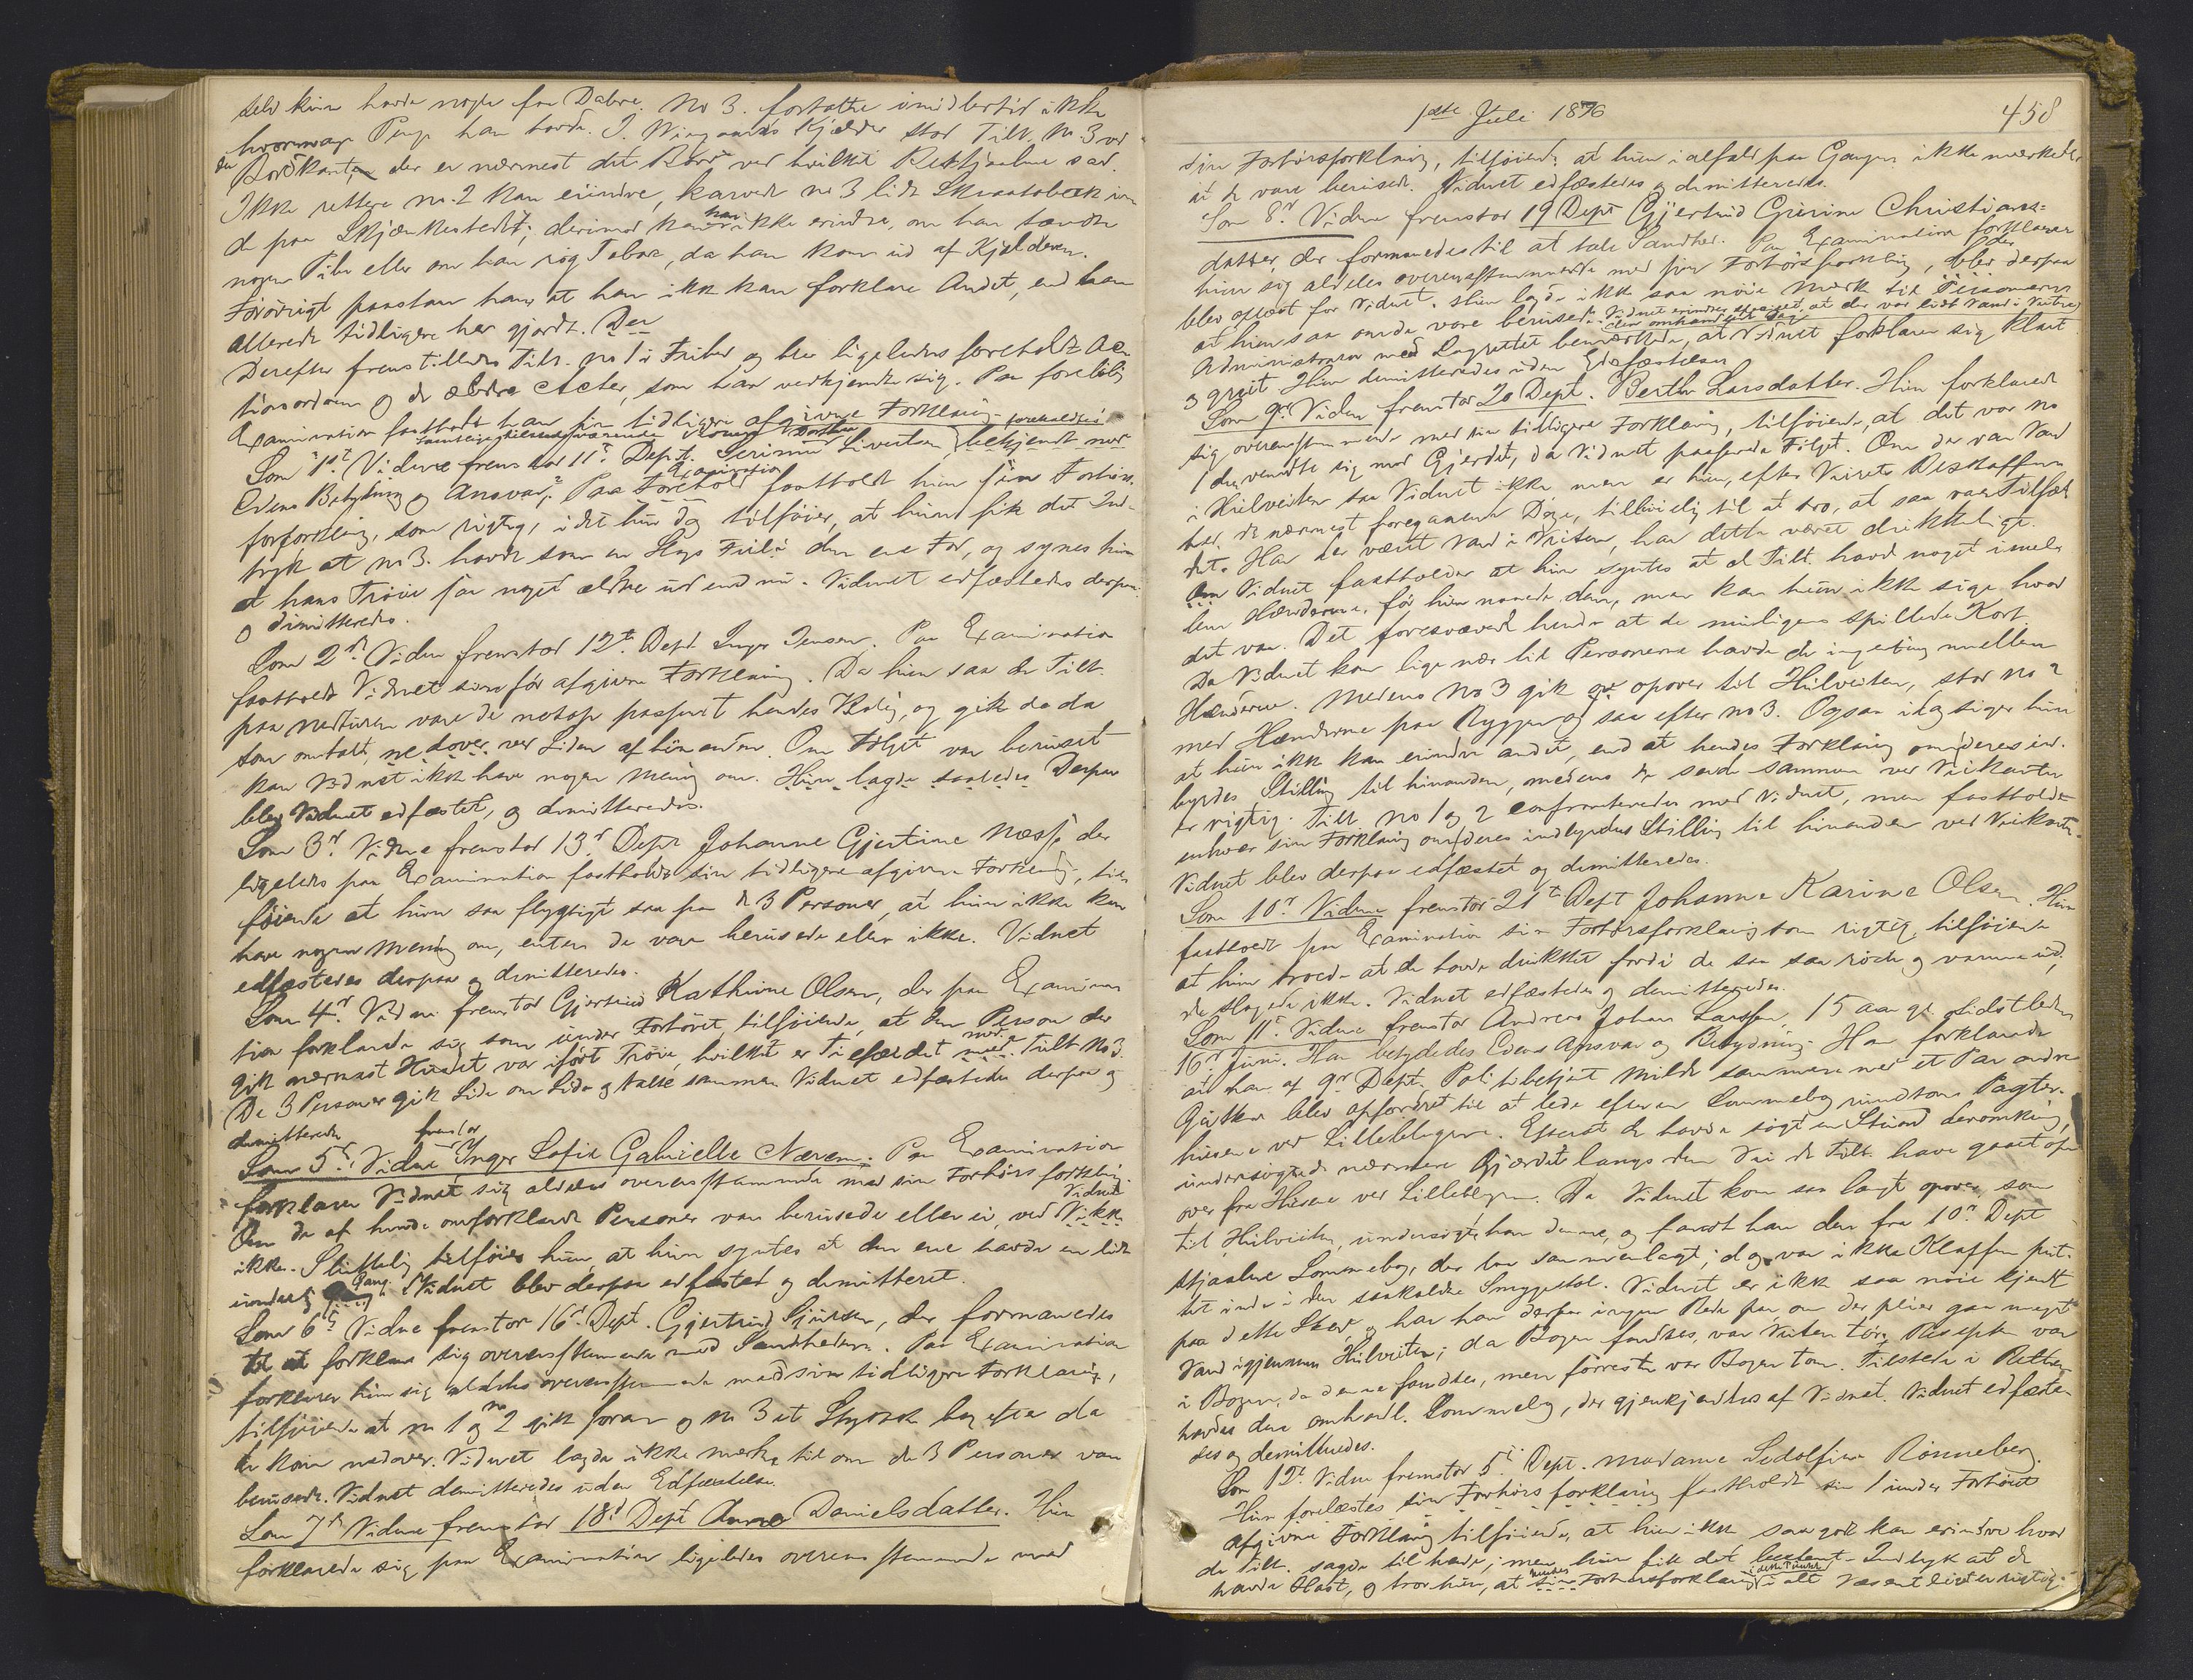 selv kun havde nogle faa Dabre. No 3. fortalte imidlertid ikke
hvormange Penge han havde. I Wiegaards Kjælder stod Tilt. No. 3 ved
den Bordkanten der er nærmest det Bord ved hvilket Rektjaalme sad.
Ikke rettere no. 2 kan erindre, karvede no 3 lidt Skraatobak inde
de paa Skjænkestedet; derimod kan han ikke erindre, om han tændte
nogen Pibe eller om han røg Tobak, da han kom ud af Kjælderen.
Forøvrigt paastaar han, at han ikke kan forklare Andet, end han
allerede tidligere har gjordt. Der
Derefter fremstilledes Tilt. no 1 i Friher og blev ligeledes foreholdt Ac-
tionsordren og de ældre Acter, som han vedkjendte sig. Paa foreløbig
Examination fastholdt han sin tidligere afgivne Forklaring.
Som 1st Vidne fremstod 11te Dept. Serianna Sivertsen, bekjendt med
Edens Betydning og Ansvar. Paa Examination Forehold fastholdt hun sin Forhørs-
forklaring, som rigtig, idet hun dog tilføier, at hun fik det Ind-
tryk at no 3. havde som en Slags Fiil i den ene Fod, og synes hun
at hans Trøie saa noget ældre ud end nu. Vidnet edfæstedes derpaa
og dimitteredes.
Som 2det Vidne fremstod 12te Dept Inger Jensen. Paa Examination
fastholdt Vidnet sin før afgivne Forklaring. Da hun saa de Tilt.
paa Nedturen vare de netop passeret hendes Bolig, og gik da da
som omtalt, nedover ved Siden af hinanden. Om Følget var beruset
kan Vidnet ikke have nogen Mening om. Hun lagde saaledes Derpaa
blev Vidnet edfæstet, og dimitteredes.
Som 3die Vidne fremstod 13de Dept Johanne Gjertine Næss, der
ligeledes paa Examination fastholdt sin tidligere afgivne Forklaring, til-
føiende at hun saa flygtigt saa paa de 3 Personer, at hun ikke kan
have nogen Mening om, enten de vare berusede eller ikke. Vidnet
edfæstedes derpaa og dimitteredes.
Som 4de Vidne fremstod Gjertrud Kathrine Olsen, der paa Examina-
tion forklarede sig som under Forhøret, tilføiende, at den Person der
gik nærmest Huset var iført Trøie, hvilket er Tilfældet med Tilt No 3.
De 3 Personer gik Side om Side og talte sammen Vidnet edfæstedes derpaa og
dimitteredes
Som 5te Vidne fremstod Inger Sofie Gabrielle Næren. Paa Examination
forklarer Vidnet sig aldeles overensstemmende med sin Forhørsforklaring.
Om de af hende omforklarede Personer var berusede eller ei, ved Vidnet
ikke. Sluttelig tilføier hun, at hun syntes at den ene havde en lidt
underlig Gang. Vidnet blev derpaa edfæstet og dimitteret.
Som 6te Vidne fremstod 16de Dept. Gjertrud Sjursen, der formanedes
til at forklare sig overensstemmende med Sandheden. Paa Examination
forklarer hun sig aldeles overensstemmende med sin tidligere Forklaring,
tilføiende at no 1 og no 2 gik foran og no 3 et Stykke bag efter da
de kom nedover. Vidnet lagde ikke Mærke til om de 3 Personer var
berusede. Vidnet dimitteredes uden Edfæstelse.
Som 7de Vidne fremstod 18de Dept Anne Danielsdatter. Hun
forklarede sig paa Examination ligeledes overensstemmende med
1ste Juli 1876
458
sin Forhørsforklaring, tilføiende at hun i alfald paa Gangen ikke mærkede
at de vare berusede. Vidnet edfæstedes og dimitteredes.
Som 8de Vidne fremstod 19 Dept Gjertrud Gurine Christians-
datter, der formanedes til at tale Sandhed. Paa Examination forklarer
hun sig aldeles overensstemmende med sin Forhørsforklaring, der blev derpaa
blev oplæst for Vidnet. Hun lagde ikke saa nøie Mærke til Personerne
at hun saa om de vare berusede. Vidnet erindrer at der var lidt Vand i Veiten
den omhandlede Dag
Administrator med Lagrettet bemærkede, at Vidnet forklarer sig klart
og greit. Hun dimitteredes uden Edfæstelse.
Som 9de Vidne fremstod 20 Dept. Berthe Larsdatter. Hun forklarede
sig overensstemmende med sin tidligere Forklaring, tilføiende, at det var no
1 der vendte sig mod Gjerdet, da Vidnet passerede Følget. Om der var Vand
i Hulveiten saa Vidnet ikke men er hun, efter Veirets Beskaffen-
hed, de nærmest foregaaende Dage, tilbøielig til at tro, at saa var Tilfæl-
det. Har der været Vand i Veiten, har dette været drikkeligt.
Vidnet fastholder at hun syntes at de Tilt. havde noget imel-
lem Hænderne, før hun naaede dem, men kan hun ikke sige hvad
det var. Det foresvævede hende at de muligens spillede Kort.
Da Vidnet kom lige nær til Personerne havde de ingenting mellem
Hænderne. Medens No 3 gik op opover til Hulveiten, stod no 2
med Hænderne paa Ryggen og saa efter no 3. Ogsaa idag siger hun
at hun ikke kan erindre andet, end at hendes Forklaring om deres ind-
byrdes Stilling til hinanden, medens de sade sammen ved Veikanten
er rigtig. Tilt. no 1 og 2 confronteredes med Vidnet, men fastholdt
enhver sin Forklaring om deres indbyrdes Stilling til hinanden ved Veikanten.
Vidnet blev derpaa edfæstet og dimitteredes.
Som 10de Vidne fremstod 21de Dept Johanne Karine Olsen. Hun
fastholdt paa Examination sin Forhørsforklaring som rigtig, tilføiende
at hun troede at de havde drukket fordi de saa saa røde og varme ud,
de slagede ikke. Vidnet edfæstedes og dimitteredes.
Som 11te Vidne fremstod Andreas Johan Larssen, 15 aar gl. sidstleden
16de Juni. Han betydedes Edens Ansvar og Betydning. Han forklarede
at han af 9de Dept. Politibetjent Milde sammen med et Par andre
Gutter blev opfordret til at lede efter en Lommebog rundtom Pagter-
husene ved Lilleblegerne. Efterat de havde søgt en Stund deromkring,
undersøgte de nærmere Gjærdet langs den Vei de Tilt. have gaaet op-
over fra Husene ved Lilleblegen. Da Vidnet kom saa langt opover, som
til Hulveiten, undersøgte han denne, og fandt han den fra 10de Dept
stjaalne Lommebog, der laa sammenlagt; dog var ikke Klaffen put-
tet inde i den saakaldte Smyggestol. Vidnet er ikke saa nøie kjendt
paa dette Sted, og har han derfor ingen Rede paa, om der pleier gaa meget
Vand igjennem Hulveiten; da Bogen fandtes, var Veiten tør. Recepten var
i Bogen, da denne fandtes, men forresten var Bogen tom. Tilstede i Retten
havdes den omhandl. Lommebog, der gjenkjendtes af Vidnet. Vidnet edfæste-
des og dimitteredes.
Som 12te Vidne fremstod 5te Dept. Madame Sedolfine Rønneberg.
Hun forelæstes sin Forhørsforklaring fastholdt sin under Forhøret
afgivne Forklaring tilføiende, at hun ikke saa godt kan erindre hvad
de Tilt. sagde til hende; men hun fik det bestemt Indtryk at de
havde Hast, og tror hun, at hendes Forhørsforklaring i dette Punkt i alt Væsentligt er rigtig.